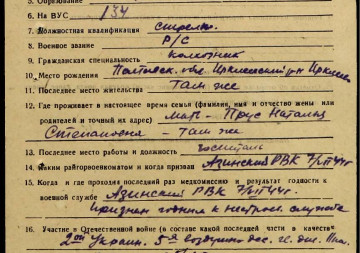 5. Образование
6. На ВУС 134
7. Должностная квалификация стрелк.
8. Военное звание Р/С
9. Гражданская специальность колхозник
10. Место рождения Полтавск. обл. Ирклеевский р-н
11. Последнее место жительства там же
12. Где проживает в настоящее время семья (фамилия, имя и отчество жены или
родителей и точный их адрес) мать - Прус Наталья
Степановна - там же
13. Последнее место работы и должность госпиталь
14. Каким райгорвоенкоматом и когда призван Азинский РВК
15. Когда и где проходил последний раз медкомиссию и результат годности к
военной службе Азинский РВК
признан годным к нестроев. службе
16. Участие в Отечественной войне (в составе какой последней части в качестве
2ой Украин. 5я воздушно дес.